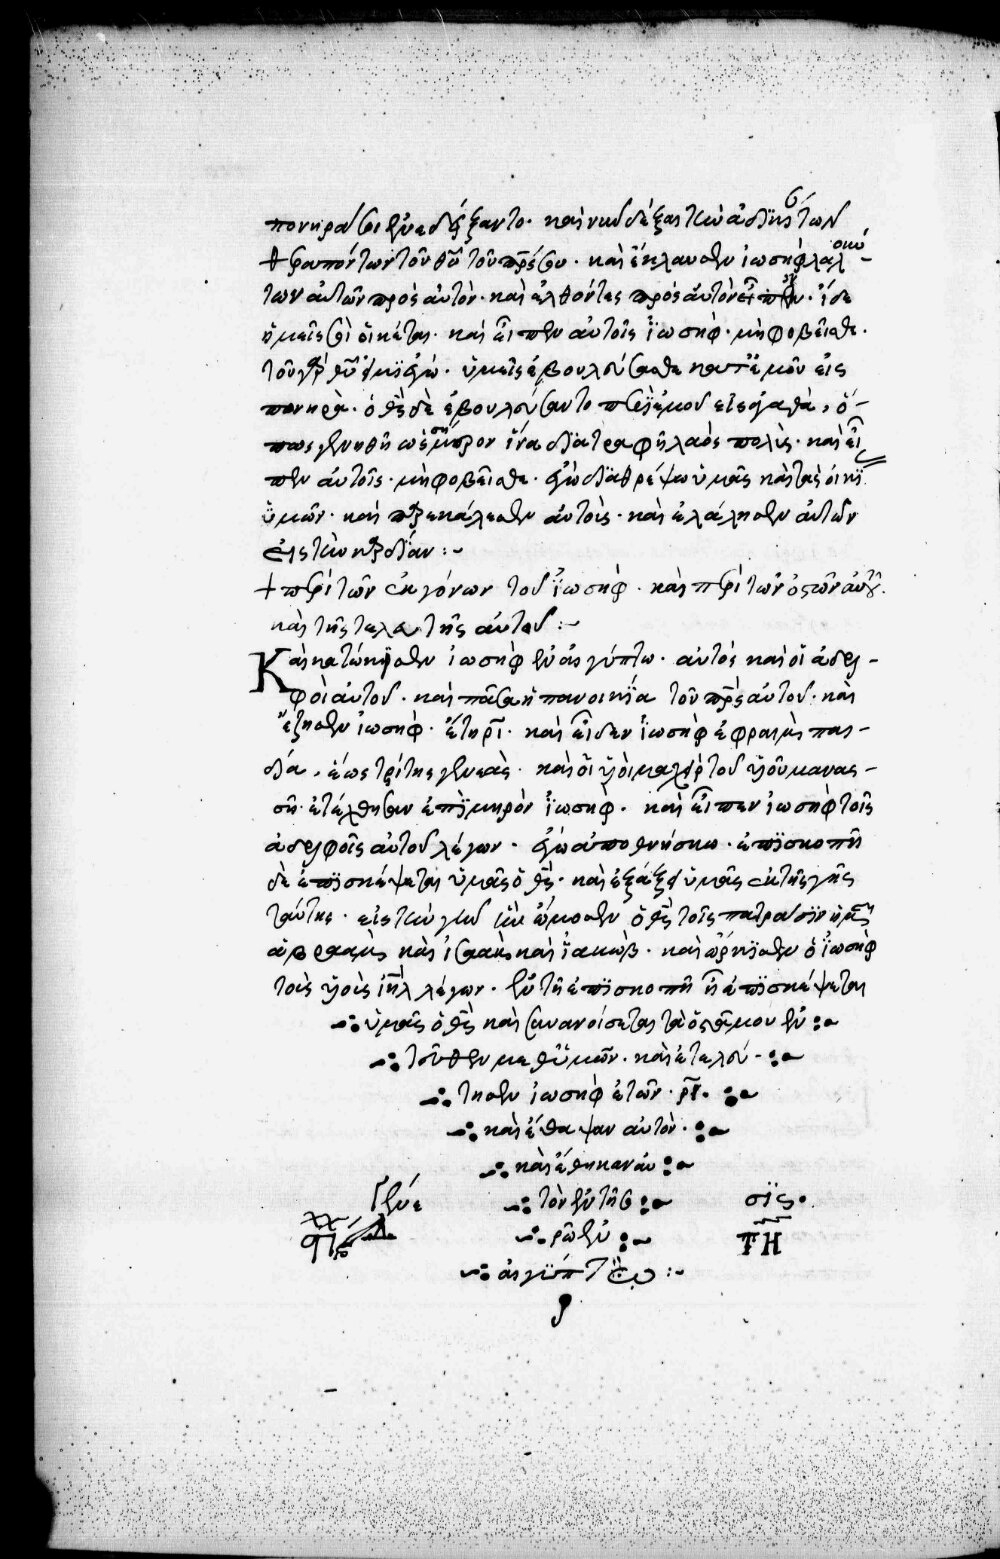 πονηρά σοι ἐνεδείξαντο· καὶ νῦν δέξαι τὴν ἀδικίαν τῶν
θεραπόντων τοῦ θυ τοῦ πρς σου· καὶ ἔκλαυσεν ἰωσὴφ λαλούν
των αὐτῶν πρὸς αὐτὸν· καὶ ἐλθόντες πρὸς αὐτὸν εἶπον· ἴδε
ἡμεῖς σοὶ οἰκέται· καὶ εἶπεν αὐτοῖς ἰωσήφ· μὴ φοβεῖσθε·
τοῦ γὰρ θυ εἰμὶ ἐγώ· ὑμεῖς ἐβουλεύσασθε κατ' ἐμοῦ εἰς
πονηρὰ· ὁ θς δὲ ἐβουλεύσατο περὶ ἐμοῦ εἰς ἀγαθὰ, ὅ-
πως γενηθῆ ὡς σήμερον ἵνα διατραφῆ λαὸς πολὺς· καὶ εἶ
πεν αὐτοῖς· μὴ φοβεῖσθε· ἐγὼ διαθρέψω ὑμᾶς καὶ τὰς οἰκί
ὑμῶν· καὶ παρεκάλεσεν αὐτοὺς· καὶ ἐλάλησεν αὐτῶν
εἰς τὴν καρδίαν :~
+ περὶ τῶν ἐκγόνων τοῦ ἰωσήφ· καὶ περὶ τῶν ὀστῶν αὐτοῦ·
καὶ τῆς τελευτῆς αὐτοῦ :~
Καὶ κατώκησεν ἰωσὴφ ἐν αἰγύπτω· αὐτὸς καὶ οἱ ἀδελ-
φοὶ αὐτοῦ· καὶ πᾶσα ἡ πανοικία τοῦ πρς αὐτοῦ· καὶ
ἔζησεν ἰωσὴφ· ἔτη ρι· καὶ εἶδεν ἰωσὴφ ἐφραὶμ παι-
δία, ἕως τρίτης γενεᾶς· καὶ οἱ υἱοὶ μαχεὶρ τοῦ υἱοῦ μανασ-
σῆ· ἐτέχθησαν ἐπὶ μηρὸν ἰωσήφ· καὶ εἶπεν ἰωσὴφ τοῖς
ἀδελφοῖς αὐτοῦ λέγων· ἐγὼ ἀποθνήσκω· ἐπισκοπῆ
δὲ ἐπισκέψεται ὑμᾶς ὁ θς· καὶ ἐξάξει ὑμᾶς ἐκ τῆς γῆς
ταύτης· εἰς τὴν γῆν ἣν ὤμοσεν ὁ θς τοῖς πατράσιν ἡμῶν
ἀβραὰμ καὶ ἰσαὰκ καὶ ἰακώβ· καὶ ὥρκισεν ὁ ἰωσὴφ
τοὺς υἱοὺς ιηλ λέγων· ἐν τῆ ἐπισκοπῆ ἧ ἐπισκέψεται
ὑμᾶς ὁ θς καὶ συνανοίσεται τὰ ὀστᾶ μου ἐν
τοῦθεν μεθ' ὑμῶν· καὶ ἐτελεύ-
τησεν ἰωσὴφ ἐτῶν· ρι·
καὶ ἔθαψαν αὐτὸν·
καὶ ἔθηκαν αὐ
τὸν ἐν τῆ σ
ορῶ ἐν
αἰγύπτω :~
Γένε
σϊς·
ΤΗ